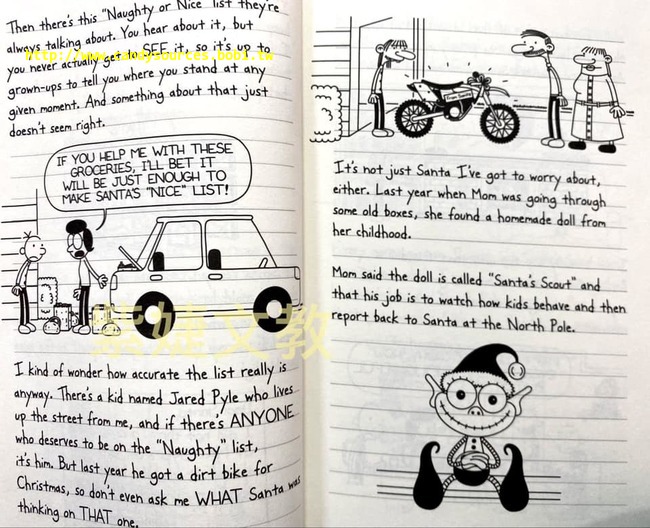 Then there's this "Naughty or Nice" list they're
always talking about. You hear about it, but
you never actually get to SEE it, so it's up to
grown-ups to tell you where you stand at any
given moment. And something about that just
doesn't seem right.
IF YOU HELP ME WITH THESE
GROCERIES, I'LL BET IT
WILL BE JUST ENOUGH TO
MAKE SANTA'S "NICE" LIST!
I kind of wonder how accurate the list really is
anyway. There's a kid named Jared Pyle who lives
up the street from me, and if there's ANYONE
who deserves to be on the "Naughty" list,
it's him. But last year he got a dirt bike for
Christmas, so don't even ask me WHAT Santa was
thinking on THAT one.
It's not just Santa I've got to worry about,
either. Last year when Mom was going through
some old boxes, she found a homemade doll from
her childhood.
Mom said the doll is called "Santa's Scout" and
that his job is to watch how kids behave and then
report back to Santa at the North Pole.
紫婕文教